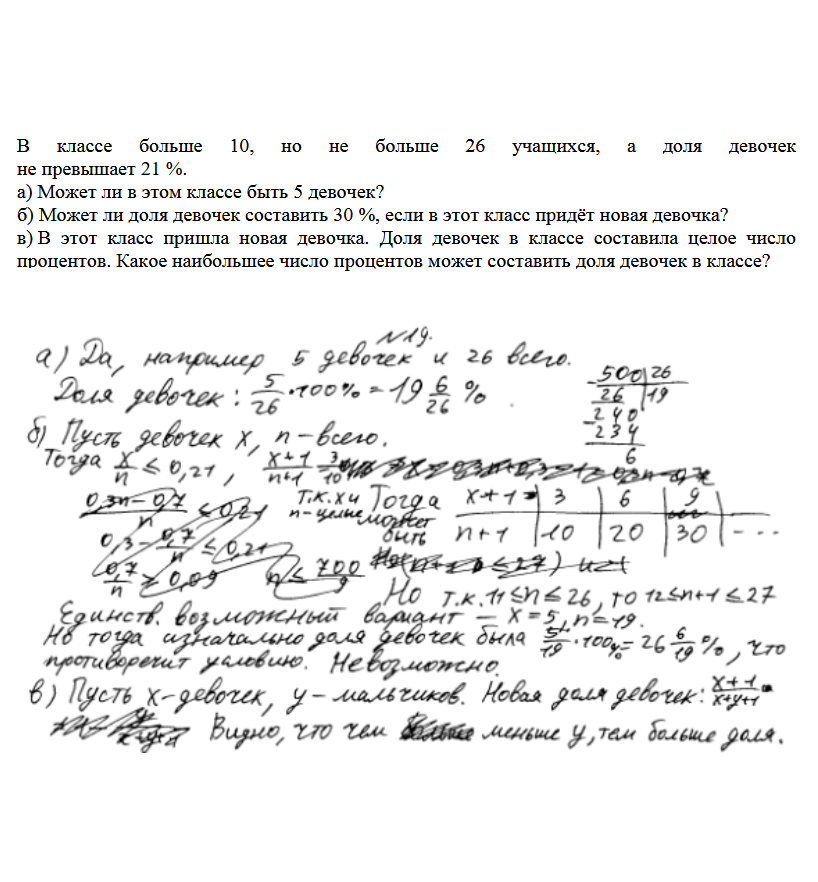 В классе больше 10, но не больше 26 учащихся, а доля девочек
не превышает 21 %.
а) Может ли в этом классе быть 5 девочек?
б) Может ли доля девочек составить 30 %, если в этот класс придёт новая девочка?
в) В этот класс пришла новая девочка. Доля девочек в классе составила целое число
процентов. Какое наибольшее число процентов может составить доля девочек в классе?
N19.
а) Да, например 5 девочек и 26 всего.
Доля девочек: 5/26 · 100% = 19 6/26 %.
500 | 26
26 | 19
240
234
6
б) Пусть девочек x, n – всего.
Тогда x/n ≤ 0,21, (x+1)/(n+1) = 3/10
(0,3n – 0,7)/n ≤ 0,21
0,3 – 0,7/n ≤ 0,21
0,7/n ≥ 0,09 n ≤ 700/9
Т.к. x и n – целые Тогда может быть
x+1 = | 3 | 6 | 9 |
n+1 | 10 | 20 | 30 | – ...
(n+1 ≤ 27)
Но т.к. 11 ≤ n ≤ 26, то 12 ≤ n+1 ≤ 27
Единств. возможный вариант – x = 5, n = 19.
Но тогда изначально доля девочек была 5/19 · 100% = 26 6/19 %, что
противоречит условию. Невозможно.
в) Пусть x – девочек, y – мальчиков. Новая доля девочек: (x+1)/(x+y+1)
Видно, что чем меньше y, тем больше доля.